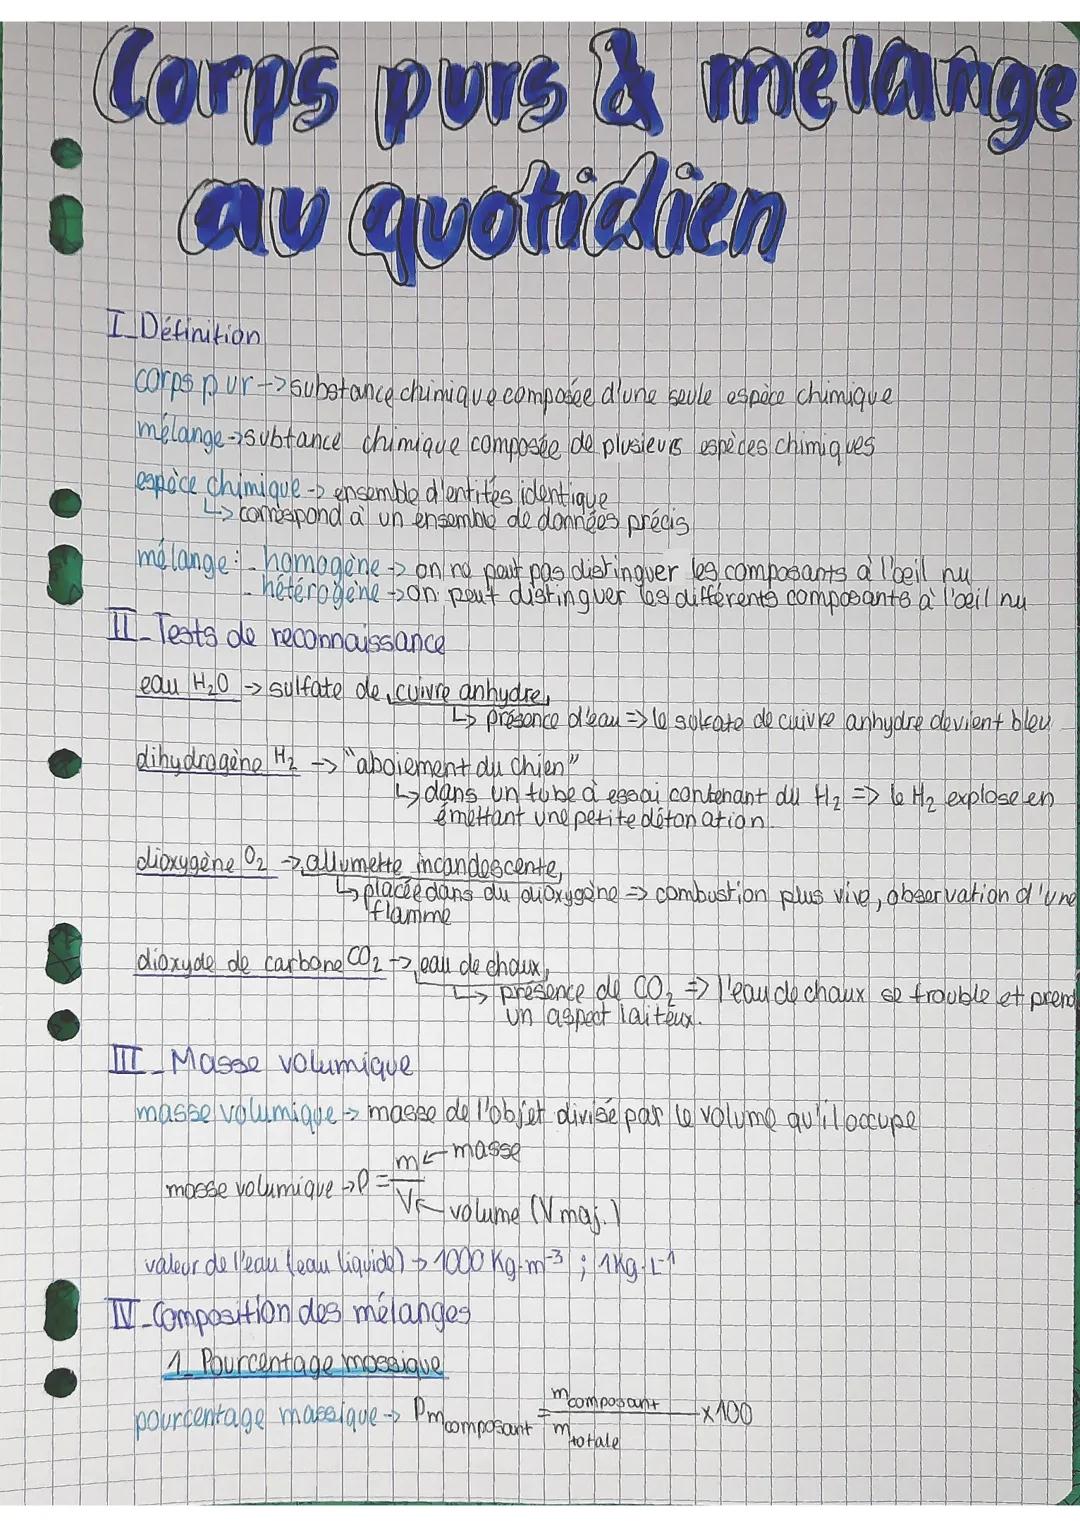 Corps purs & mélange
au quotidien
I_Définition
corps pur -> substance chimique composée d'une seule espèce chimique
mélange -> subtance chimique composée de plusieurs espèces chimiques
espèce chimique -> ensemble d'entités identique
↳ correspond à un ensemble de données précis
mélange : - homogène -> on ne peut pas distinguer les composants à l'oeil nu
- hétérogène -> on peut distinguer les différents composants à l'oeil nu
II_Tests de reconnaissance
eau H₂O -> sulfate de cuivre anhydre
↳ présence d'eau => le sulfate de cuivre anhydre devient bleu
dihydrogène H₂ -> "aboiement du chien"
↳ dans un tube à essai contenant du H₂ => le H₂ explose en
émettant une petite détonation.
dioxygène O₂ -> allumette incandescente
↳ placée dans du dioxygène => combustion plus vive, observation d'une
flamme
dioxyde de carbone CO₂ -> eau de chaux
↳ présence de CO₂ => l'eau de chaux se trouble et prend
un aspect laiteux.
III_Masse volumique
masse volumique -> masse de l'objet divisé par le volume qu'il occupe
m <- masse
masse volumique -> ρ = —
V <- volume (V maj.)
valeur de l'eau (eau liquide) -> 1000 Kg.m⁻³ ; 1Kg.L⁻¹
IV_Composition des mélanges
1_Pourcentage massique
pourcentage massique -> Pm composant = m composant / m totale x100